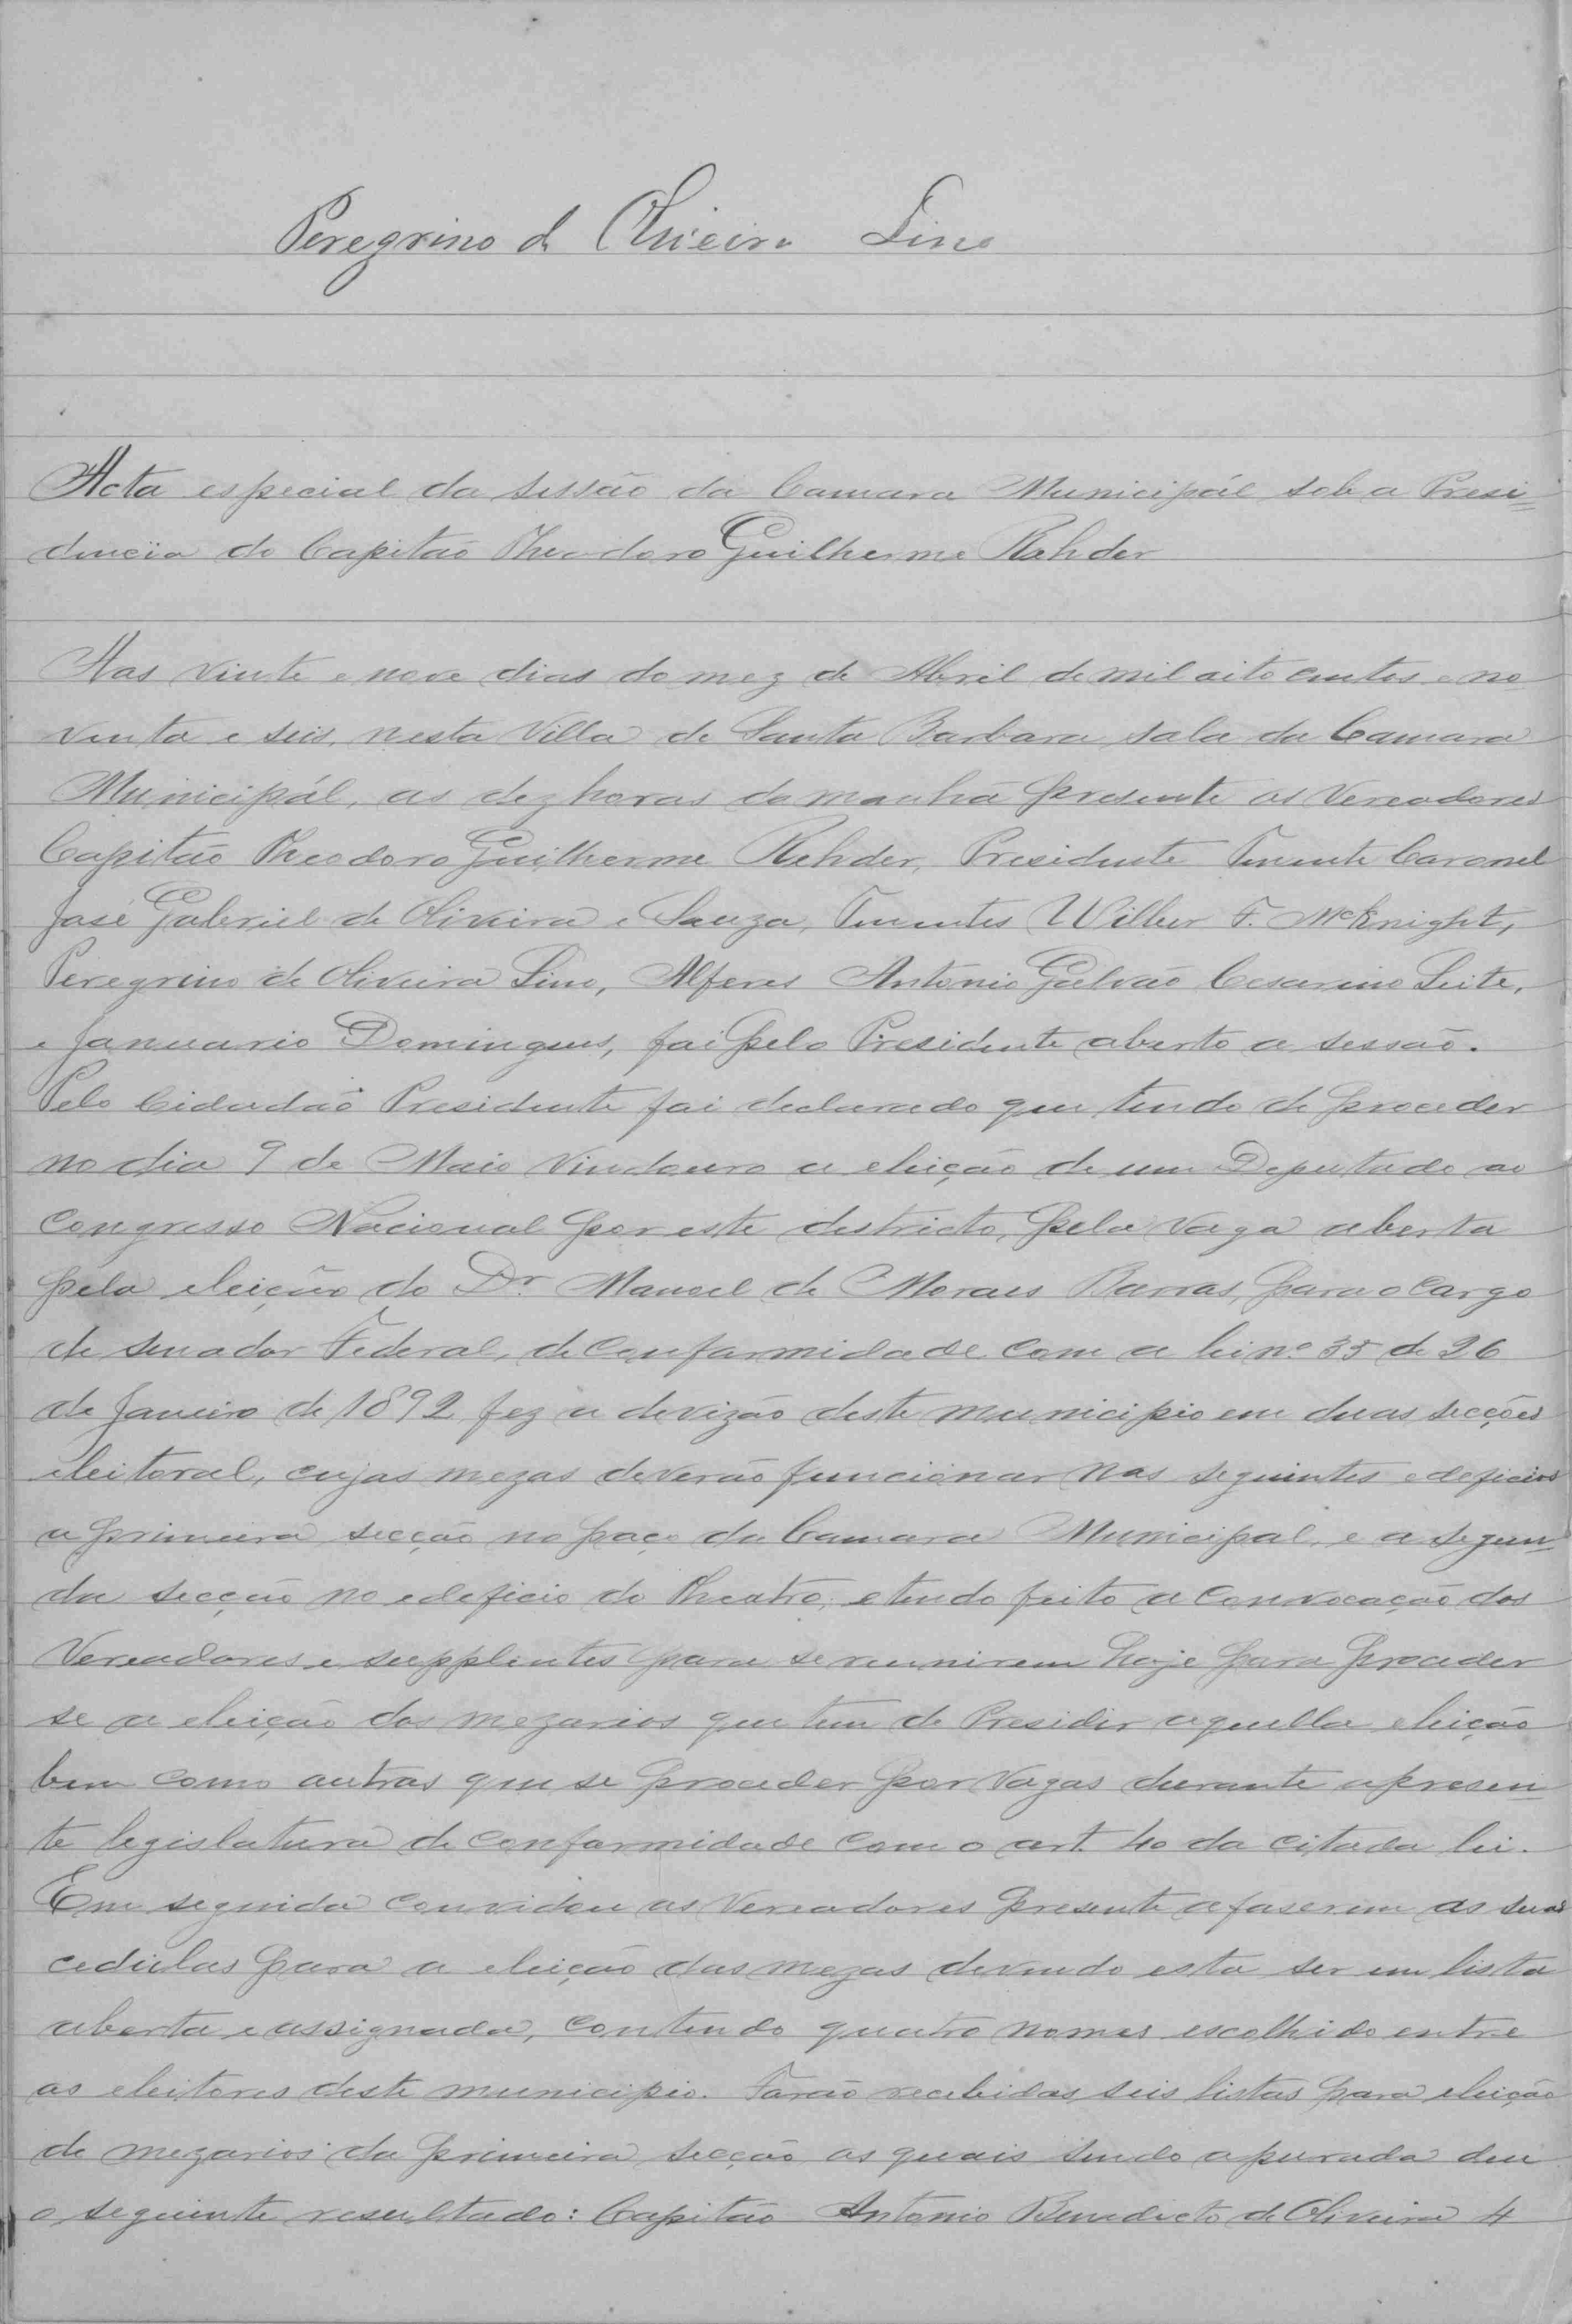 Peregrino d Oliveira Lino
Acta especial da sessão da Camara Municipál sob a Presi=
dencia do Capitão Theodoro Guilherme Rehder
Aos vinte e nove dias do mez de Abril de mil oito centos e no
venta e seis, nesta Villa de Santa Barbara sala da Camara
Municipál, as dez horas da manhã presente os Vereadores
Capitão Theodoro Guilherme Rehder, Presidente Tenente Coronel
José Gabriel de Oliveira e Souza, Tenentes Wilber F. McKnight,
Peregrino de Oliveira Lino, Alferes Antonio Galvão Cesarino Leite,
e Januario Domingues, foi pelo Presidente aberto a sessão.
Pelo Cidadão Presidente foi declarado que tendo de proceder
no dia 9 de Maio vindouro a eleição de um Deputado ao
Congresso Nacional por este destricto, pela vaga aberta
pela eleição do Dr. Manoel de Moraes Barros, para o cargo
de senador Federal, de conformidade com a lei nº 35 de 26
de Janeiro de 1892 fez a devizão deste municipio em duas secções
eleitoral, cujas mezas deverão funcionar nos seguintes edeficios
a primeira secção no paço da Camara Municipal, e a segun=
da secção no edeficio do Theatro, e tendo feito a convocação dos
Vereadores e supplentes para se reunirem hoje para proceder
se a eleição dos mezarios que tem de Presidir aquella eleição
bem como outras que se proceder por vagas durante apresen
te legislatura de conformidade com o art. 40 da citada lei.
Em seguida convidou os Vereadores presente a faserem as suas
cedulas para a eleição das mezas devendo esta ser em lista
aberta e assignada, contendo quatro nomes escolhido entre
os eleitores deste municipio. Forão recebidas seis listas para eleição
de mezarios da primeira secção as quais sendo apurada deu
o seguinte resultado: Capitão Antonio Benedicto de Oliveira 4